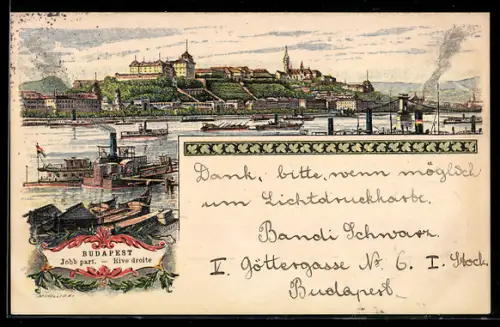 BUDAPEST
Jobb part. — Rive droite
Dank, bitte, wenn möglich
um Lichtdruckkarte.
Bandi Schwarz
V. Göttergasse № 6. I. Stock
Budapest.